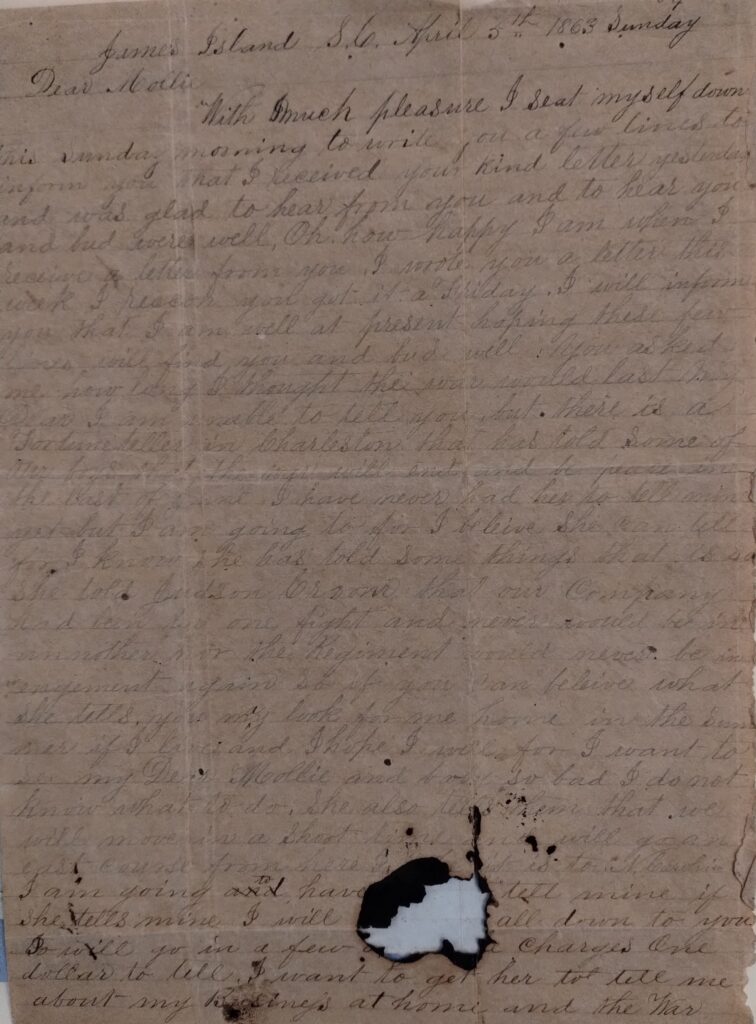 James Island S.C. April 5th 1863 Sunday
Dear Mollie
With Much pleasure I seat myself down
this Sunday morning to write you a few lines to
inform you that I received your kind letter yesterday
and was glad to hear from you and to hear you
and bud were well, Oh how happy I am when I
receive a letter from you. I wrote you a letter this
week I reccon you got it a Friday. I will inform
you that I am well at present hoping these few
lines will find you and bud well. You asked
me how long I thought the war would last My
Dear I am unable to tell you but there is a
Fortuneteller in Charleston that has told some of
the boys that the war will end and be peace in
the last of June I have never had her to tell mine
yet but I am going to for I beleive she can tell
for I know she has told some things that is so
She told Judson that our Company
had been in one fight and never would be in
annother nor the Regiment would never be in
engement again so if you can beleive what
she tells, you may look for me home in the sum
mer if I live and I hope I will, for I want to
see my Dear Mollie and boy so bad I do not
know what to do, She also tells them that we
will move in a short time and will go an
east course from here is to N.
I am going to have tell mine if
she tells mine I will all down to you
I will go in a few charges One
dollar to tell, I want to get her to tell me
about my Business at home and the War